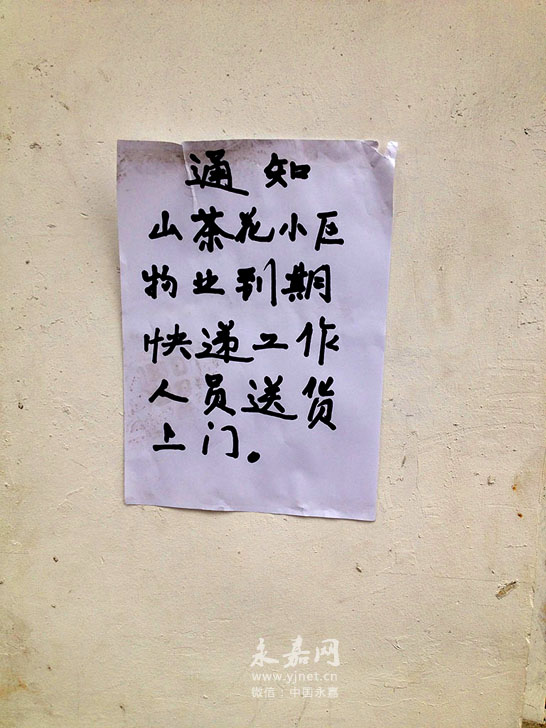 通知
山茶花小区
物业到期
快递工作
人员送货
上门。
永嘉网
www.yjnet.cn
微信：中国永嘉